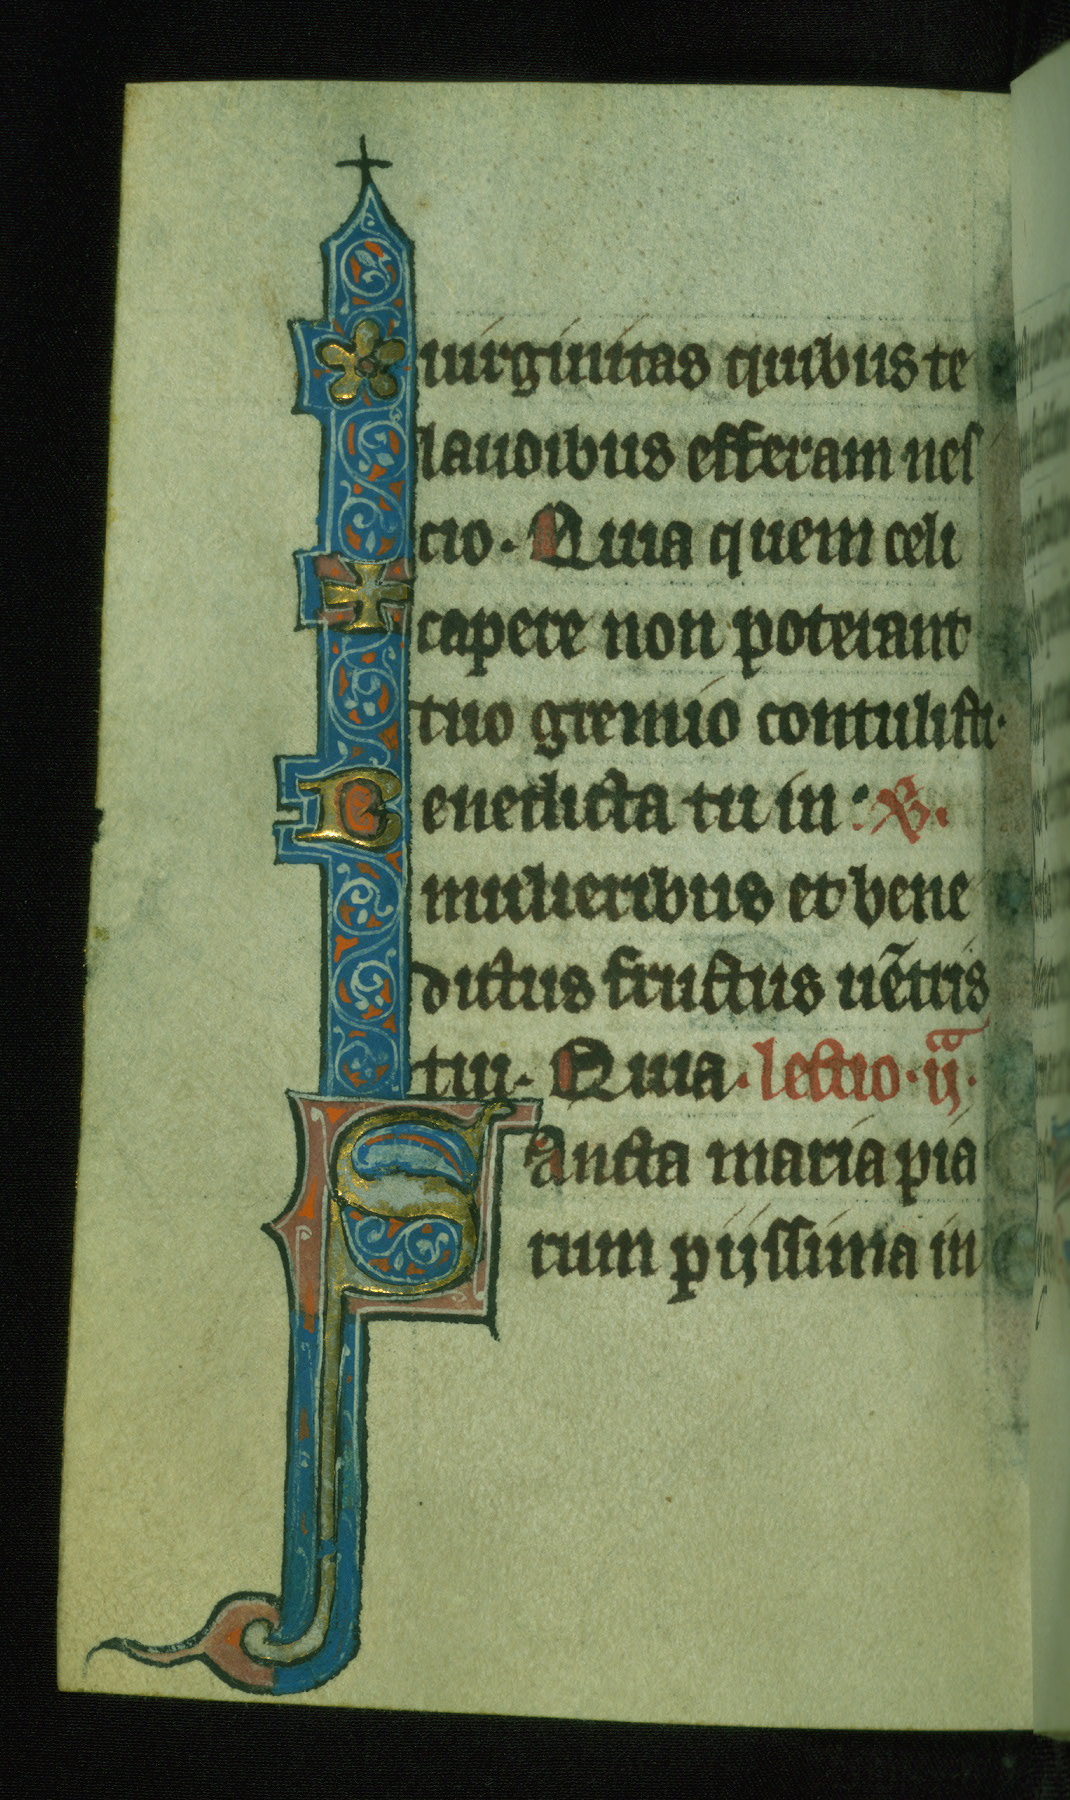 uirginitas quibus te
laudibus efferam nes
cio. Quia quem celi
capere non poterant
tuo gremio contulisti.
Benedicta tu in : ℟.
mulieribus et bene
dictus fructus uẽtris
tui. Quia. lectio. ijᵃ.
Sancta maria pia
rum piissima in